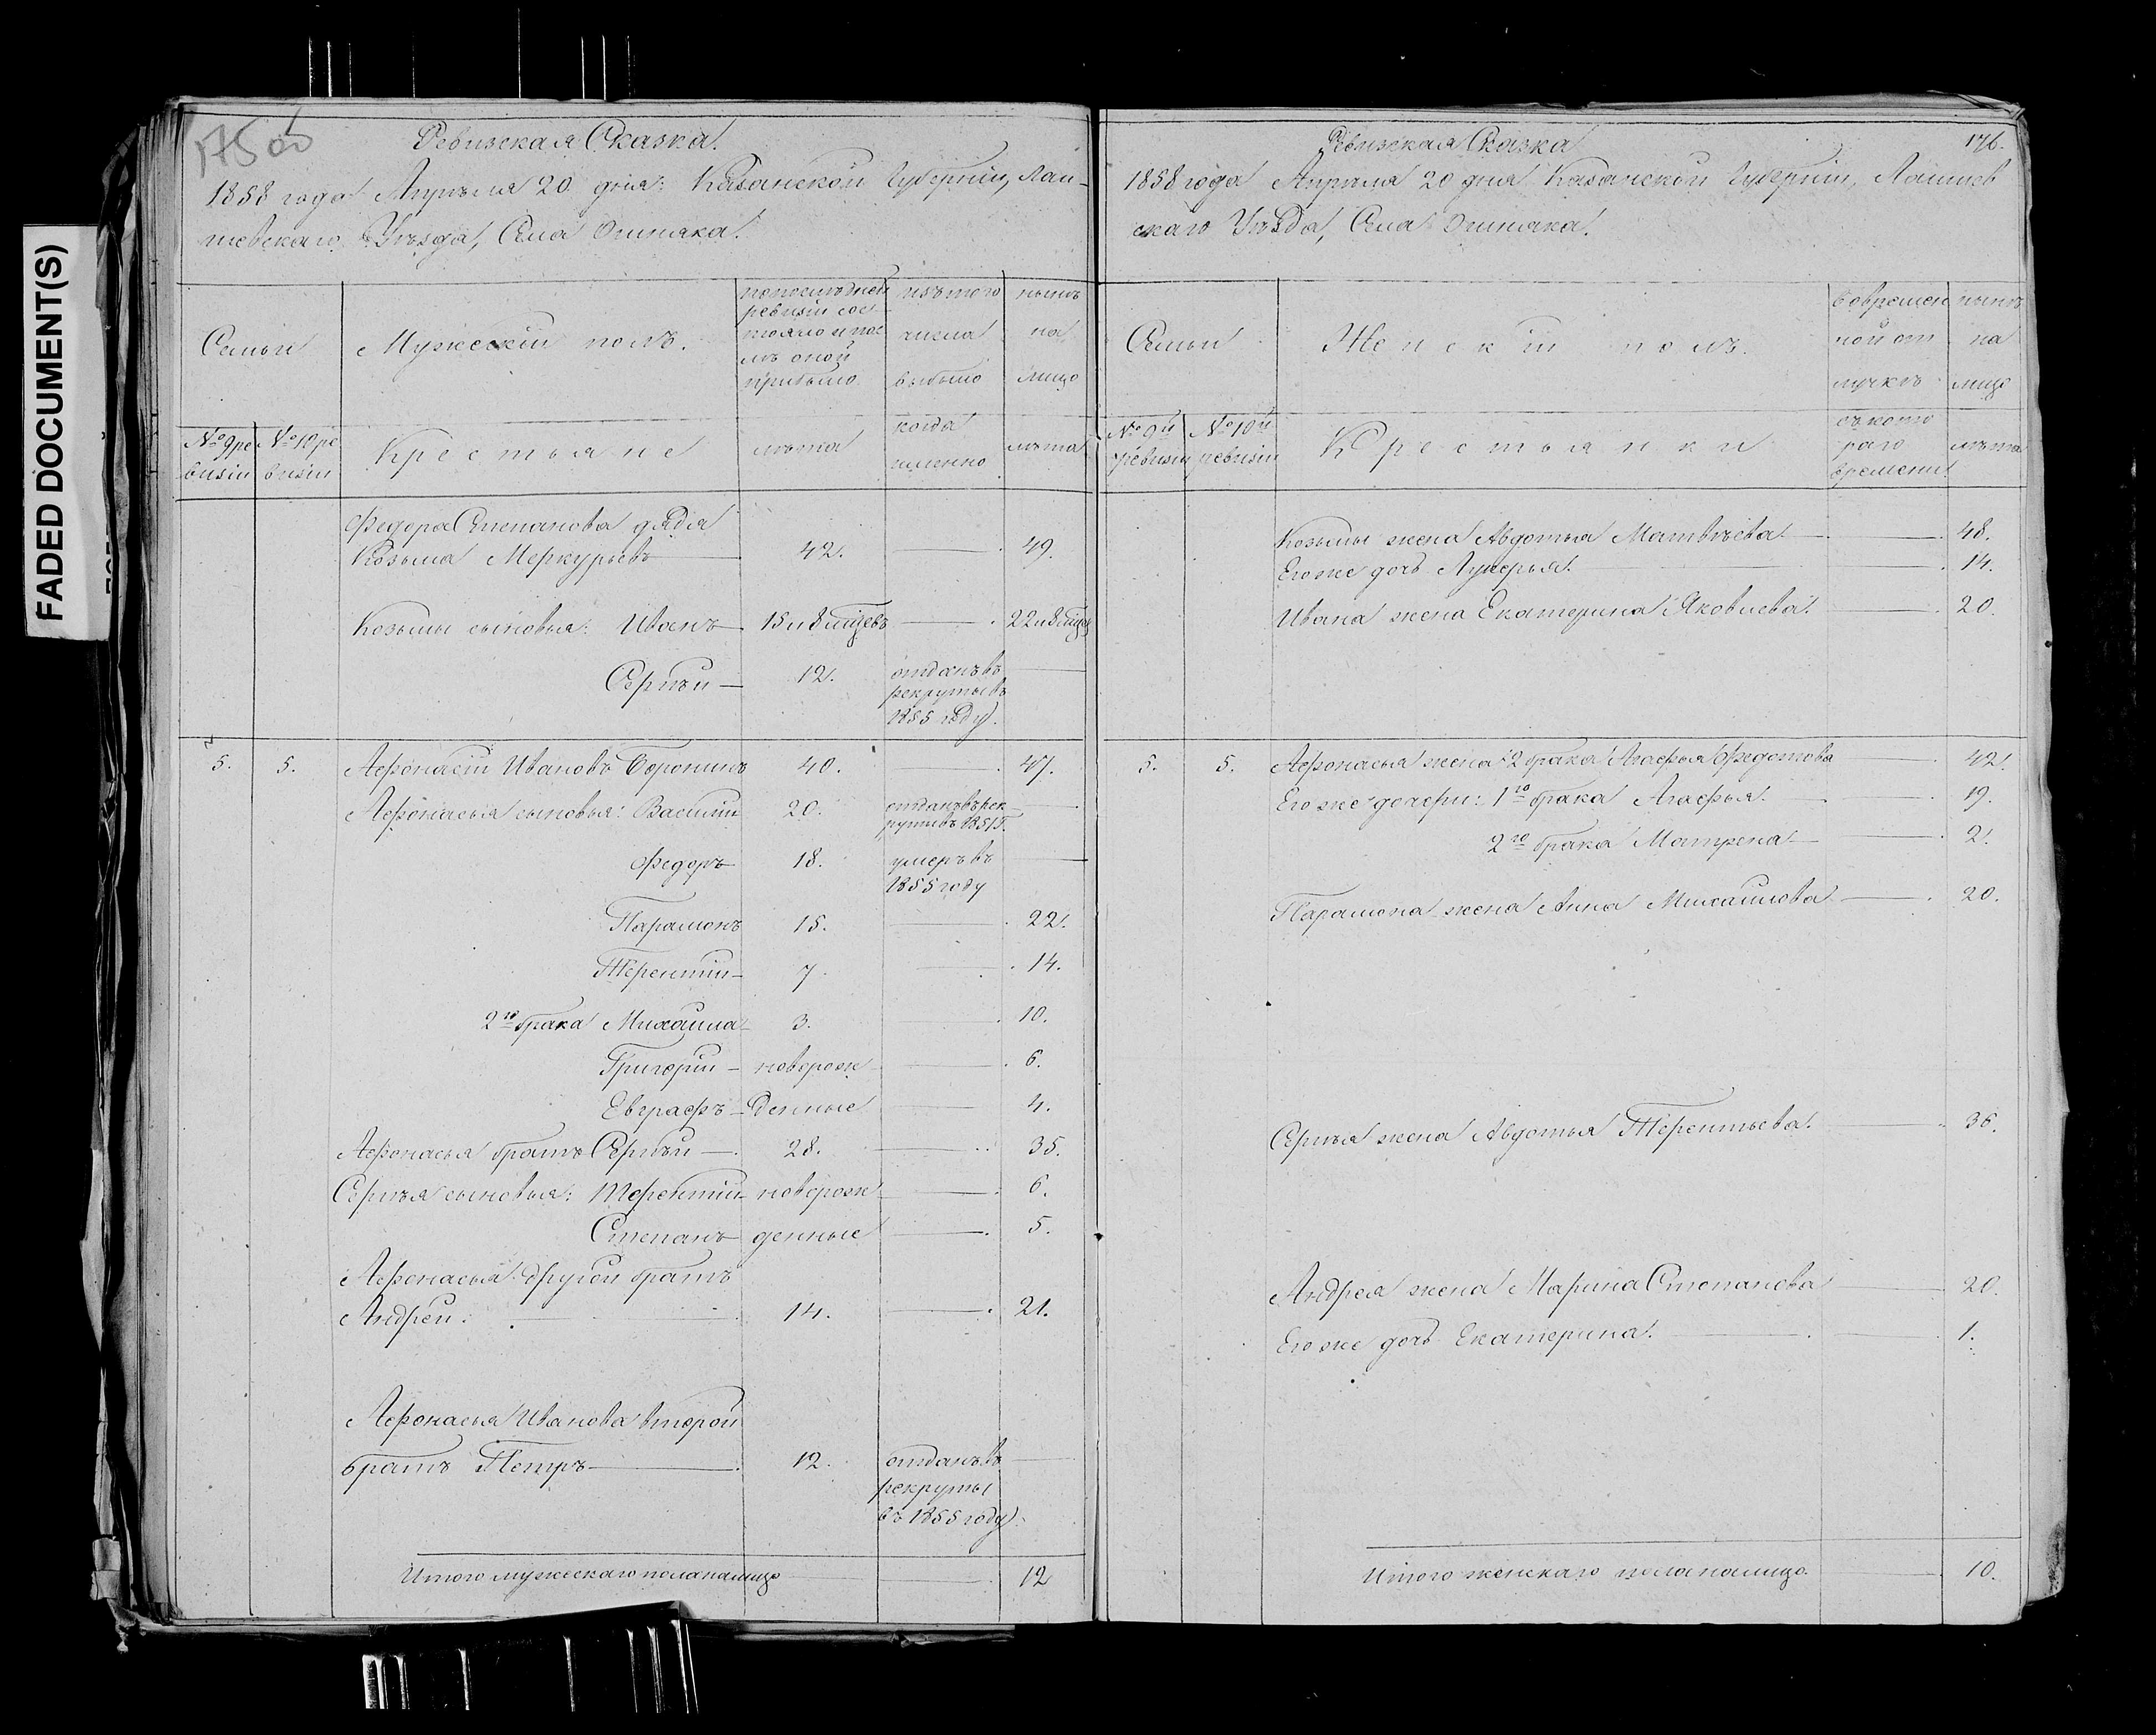 FADED DOCUMENT(S)
175 об
Ревизская Сказка.
1858 года Апрѣля 20 дня: Казанской Губерніи, Лаи-
шевскаго Уѣзда, Села
Семьи
Мужескій полъ.
по послѣдней
ревизіи сос-
тояло и пос
лѣ оной
прибыло
изъ того
числа
выбыло
нынѣ
на
лицо
№ 9 ре
визіи
№ 10 ре
визіи
Крестьяне
лѣта
когда
именно
лѣта
Федора Степанова дядя
Козьма Меркурьевъ 42. 49.
Козьмы сыновья: Иванъ 15 и 8 мцевъ 22 и 8 мцев
Сергѣй 12. отданъ въ
рекруты въ
1855 году.
5. 5. Афонасій Ивановъ Воронинъ 40. 47.
Афонасья сыновья: Василій 20. отданъ въ рек
руты въ 185
Федоръ 18. умеръ въ
1855 году
Парамонъ 15. 22.
Терентій 7. 14.
2го брака Михаила 3. 10.
Григорій новорож 6.
Евграфъ денные 4.
Афонасья братъ Сергѣй 28. 35.
Сергѣя сыновья: Терентій новорож 6.
Степанъ денные 5.
Афонасья другой братъ
Андрей. 14. 21.
Афонасья Иванова второй
братъ Петръ 12. отданъ въ
рекруты
въ 1855 году.
Итого мужескаго пола налицо 12
Ревизская Сказка 176.
1858 года Апрѣля 20 дня Казанской Губерніи, Лаишев
скаго Уѣзда, Села
Семьи
Женскій полъ.
во времен
ной от
лучкѣ
нынѣ
на
лицо
№ 9й
ревизіи
№ 10й
ревизіи
Крестьянки
съ кото
раго
времени
лѣта
Козьмы жена Авдотья Матвѣева. 48.
Его же дочь Лукерья. 14.
Ивана жена Екатерина Яковлева. 20.
5. 5. Афонасья жена 2 брака Агафья Федотова 42.
Его же дочери: 1го брака Агафья. 19.
2го брака Матрена 2.
Парамона жена Анна Михайлова 20.
Сергѣя жена Авдотья Терентьева. 36.
Андрея жена Марина Степанова 20.
Его же дочь Екатерина. 1.
Итого женскаго пола налицо. 10.